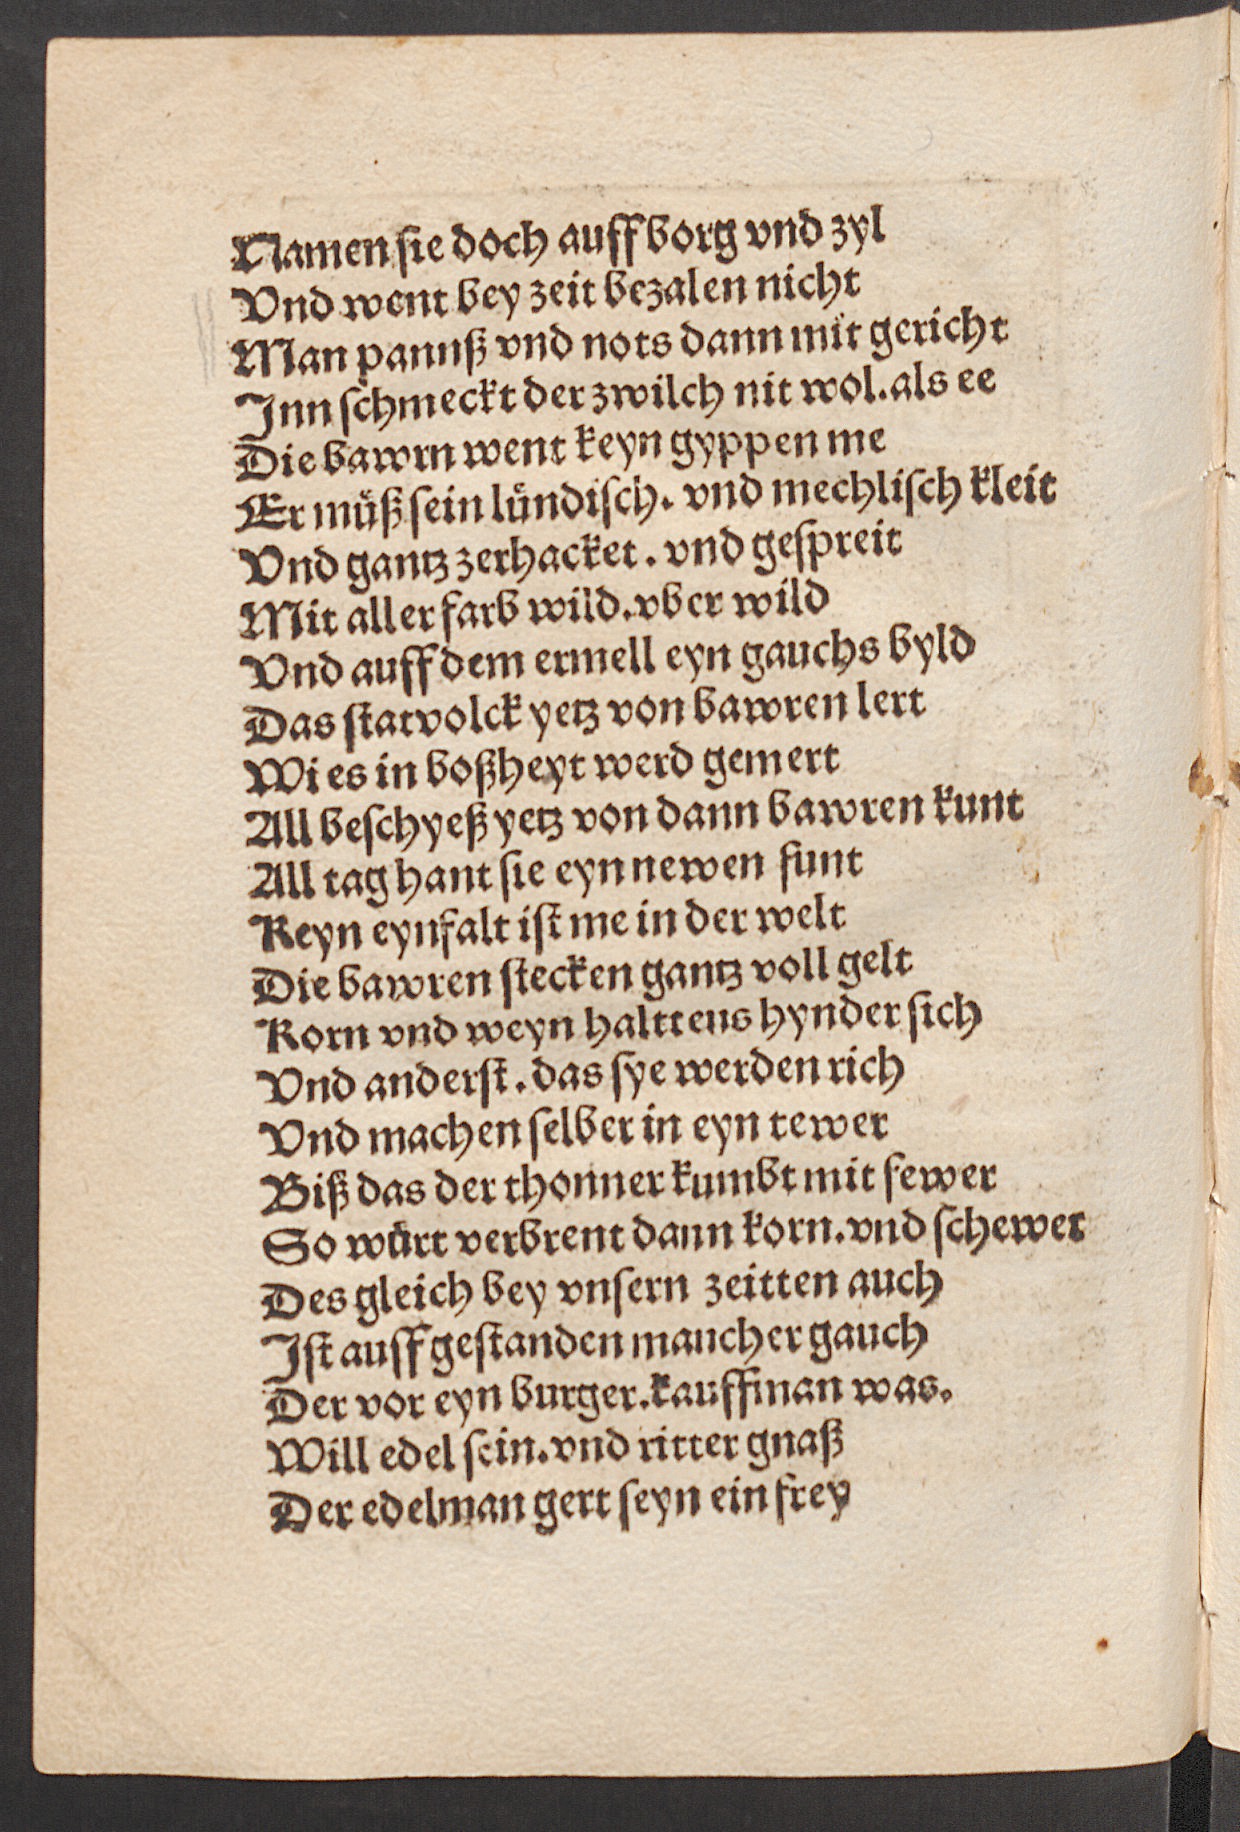 Namen sie doch auff borg vnd zyl
Vnd went bey zeit bezalen nicht
Man pannß vnd nots dann mit gericht
Jnn schmeckt der zwilch nit wol. als ee
Die bawrn went keyn gyppen me
Er müß sein lündisch. vnd mechlisch kleit
Vnd gantz zerhacket. vnd gespreit
Mit aller farb wild. vber wild
Vnd auff dem ermell eyn gauchs byld
Das statvolck yetz von bawren lert
Wi es in boßheyt werd gemert
All beschyeß yetz von dann bawren kunt
All tag hant sie eyn newen funt
Keyn eynfalt ist me in der welt
Die bawren stecken gantz voll gelt
Korn vnd weyn haltt eus hynder sich
Vnd anderst. das sye werden rich
Vnd machen selber in eyn tewer
Biß das der thonner kumbt mit fewer
So würt verbrent dann korn. vnd schewer
Des gleich bey vnsern zeitten auch
Jst auff gestanden maucher gauch
Der vor eyn burger. kauffman was.
Will edel sein. vnd ritter gnaß
Der edelman gert seyn ein frey